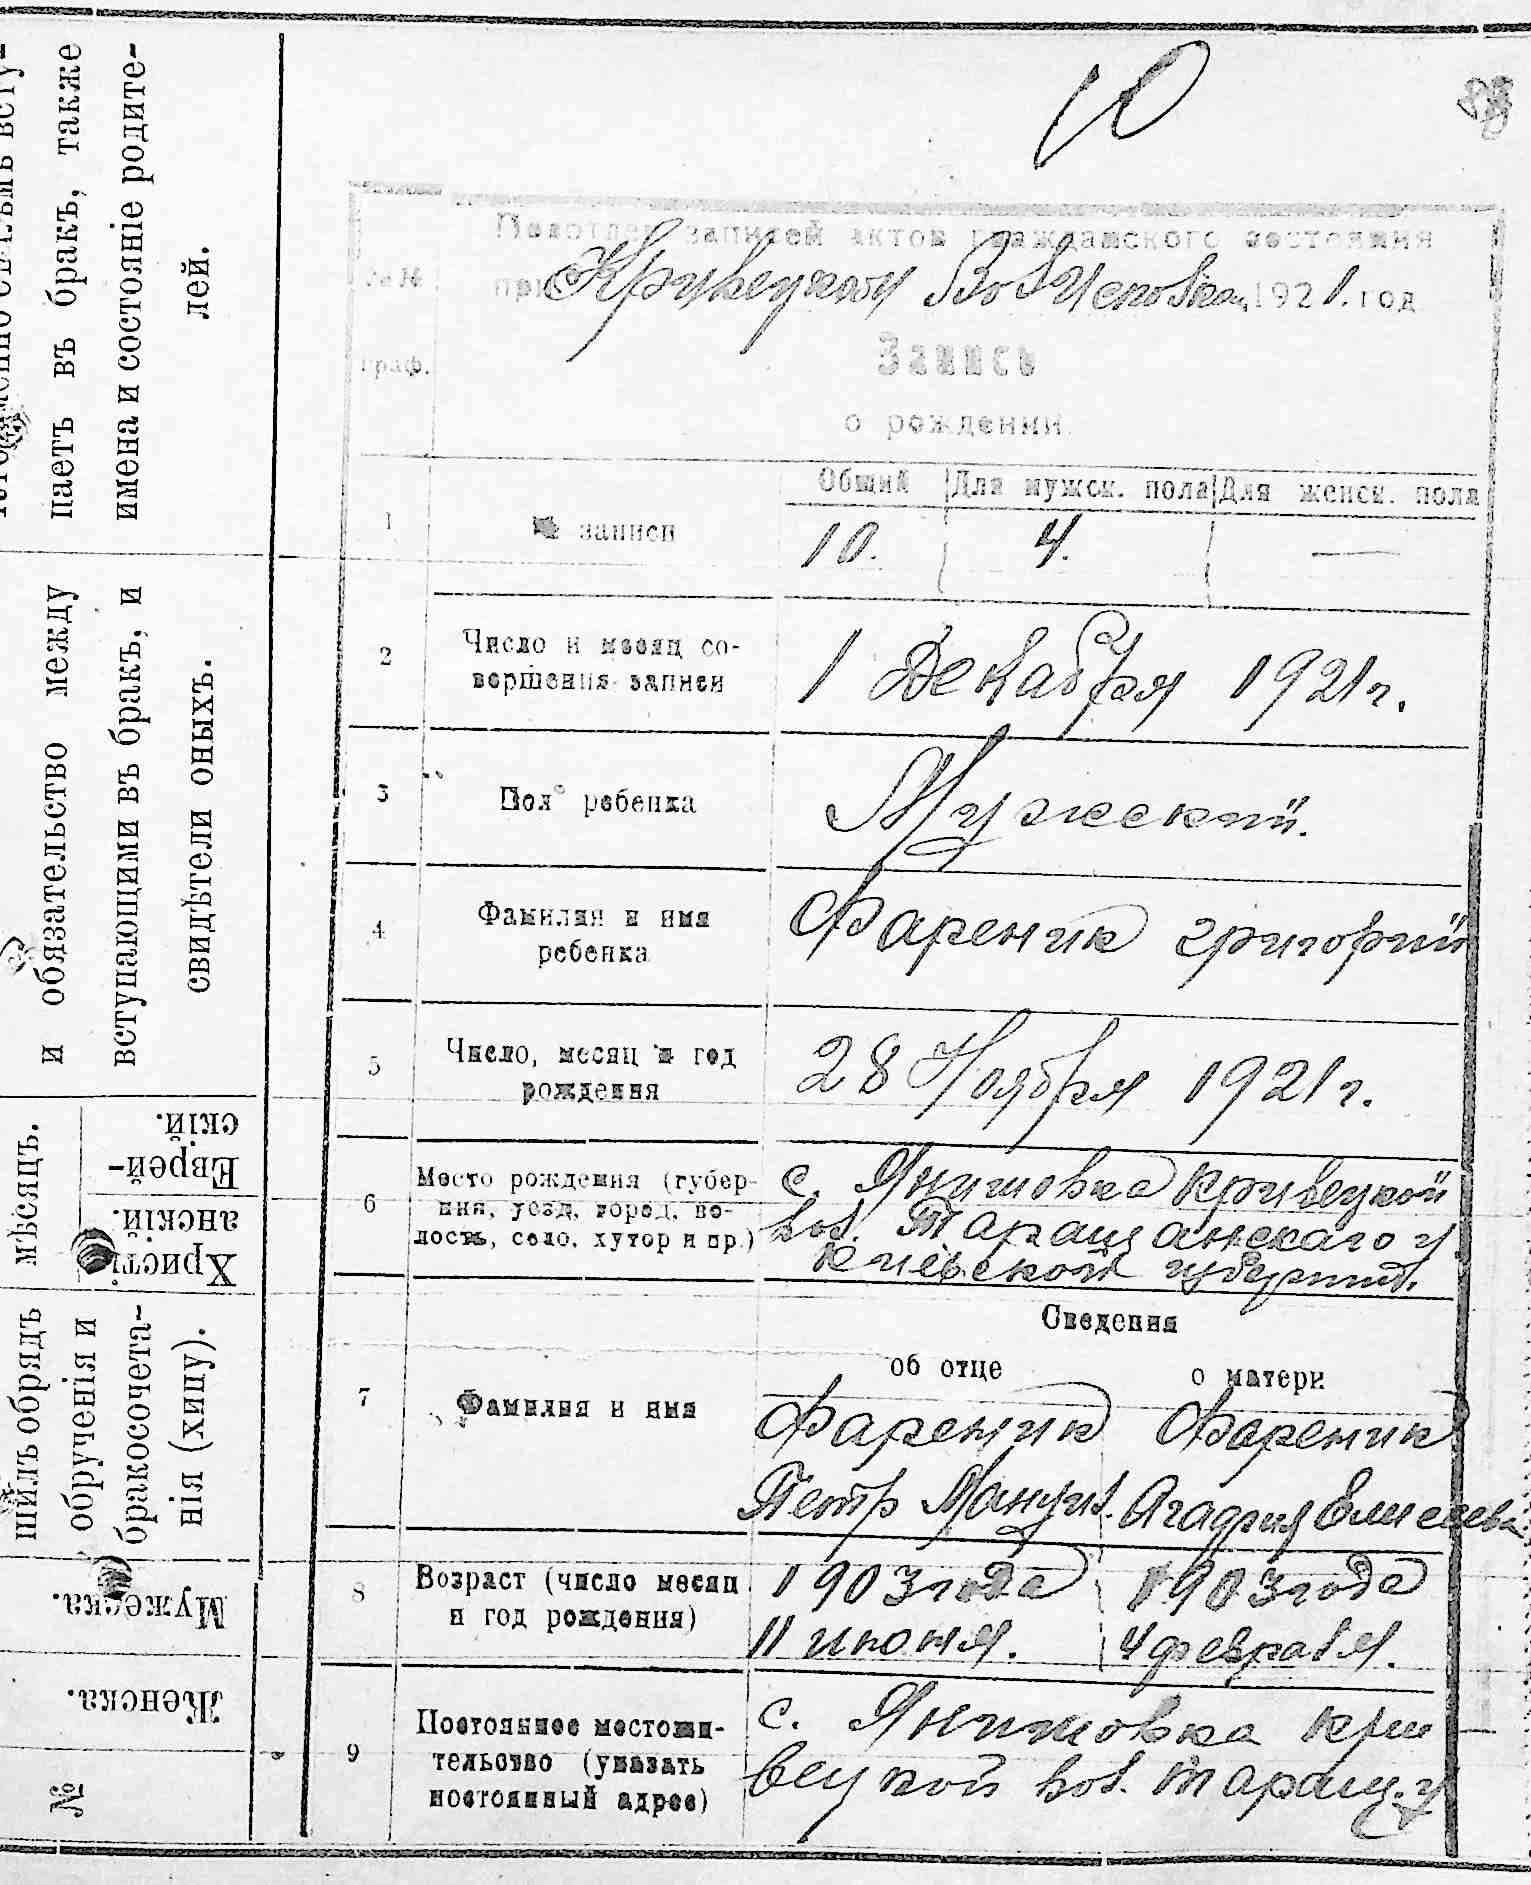 10
Подотдел записей актов гражданского состояния
при Кривецком Волисполкоме 1921. год
№№
граф.
Запись
о рождении
Общий Для мужск. пола Для женск. пола
1 № записи 10. 4. —
2 Число и месяц со-
вершения записи
1 Декабря 1921 г.
3 Пол ребенка Мужеский.
4 Фамилия и имя
ребенка
Фареник григорий
5 Число, месяц и год
рождения
28 Ноября 1921 г.
6 Место рождения (губер-
ния, уезд, город, во-
лость, село, хутор и пр.)
с. Янишовка кривецкой
вол. Таращанскаго у.
Киевской губернии.
Сведения
об отце о матери
7 Фамилия и имя
Фареник Фареник
Петр Агафия Елисеева
8 Возраст (число месяц
и год рождения)
1903 года 1903 года
11 июня. 4 февраля.
9 Постоянное местожи-
тельство (указать
постоянный адрес)
с. Янишовка кри
вецкой вол. Таращ. у
паетъ въ бракъ, также
имена и состояніе родите-
лей.
и обязательство между
вступающими въ бракъ, и
свидѣтели оныхъ.
мѣсяцъ.
Еврей-
скій.
Христі
анскій.
шилъ обрядъ
обрученія и
бракосочета-
нія (хипу).
Мужеска.
Женска.
№